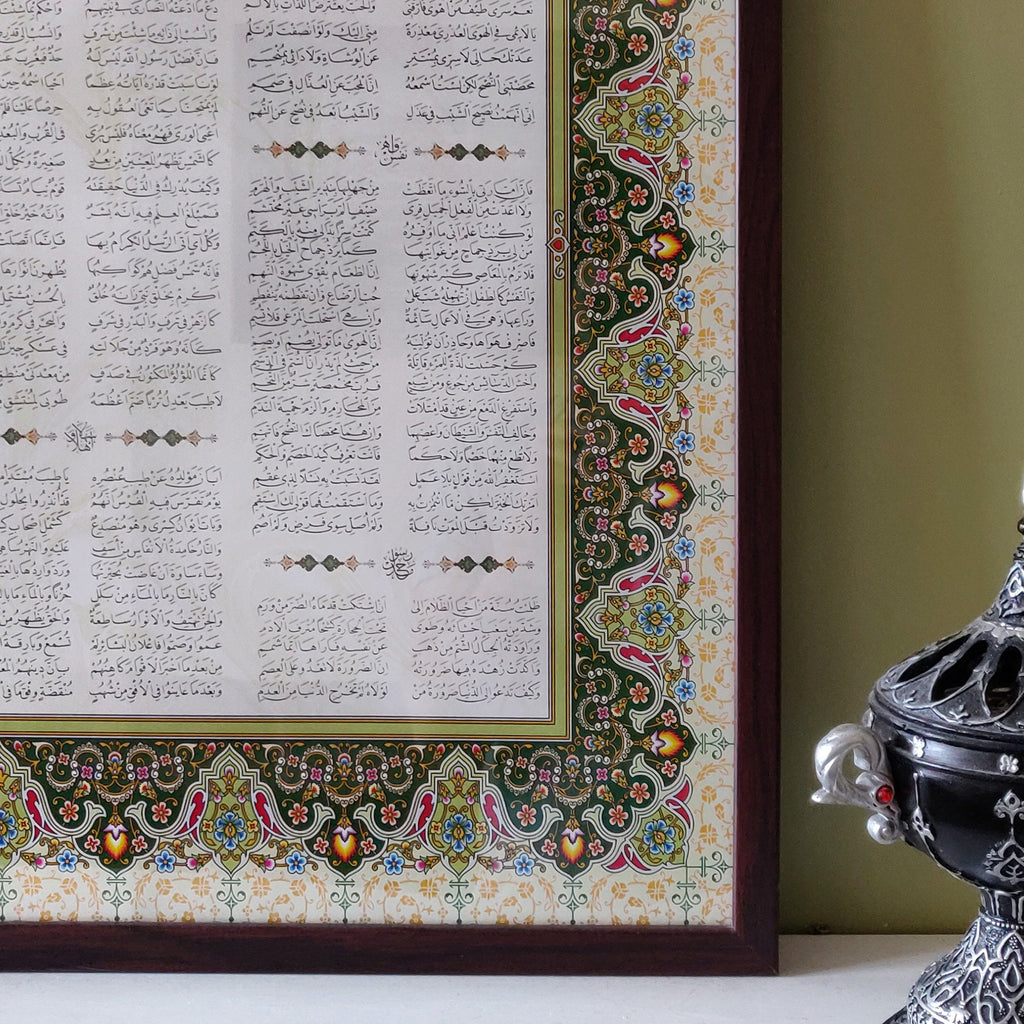 نعم سرى طيف من أهوى فأرقني والحب يعترض اللذات بالألم
يا لائمي في الهوى العذري معذرة مني إليك ولو أنصفت لم تلم
عدتك حالي لا سري بمستتر عن الوشاة ولا دائي بمنحسم
محضتني النصح لكن لست أسمعه إن المحب عن العذال في صمم
إني اتهمت نصيح الشيب في عذلي والشيب أبعد في نصح عن التهم
فإن أمارتي بالسوء ما اتعظت من جهلها بنذير الشيب والهرم
ولا أعدت من الفعل الجميل قرى ضيف ألم برأسي غير محتشم
لو كنت أعلم أني ما أوقره كتمت سرا بدا لي منه بالكتم
من لي برد جماح من غوايتها كما يرد جماح الخيل باللجم
فلا ترم بالمعاصي كسر شهوتها إن الطعام يقوي شهوة النهم
والنفس كالطفل إن تهمله شب على حب الرضاع وإن تفطمه ينفطم
وراعها وهي في الأعمال سائمة وإن هي استحلت المرعى فلا تسم
فاصرف هواها وحاذر أن توليه إن الهوى ما تولى يصم أو يصم
كم حسنت لذة للمرء قاتلة من حيث لم يدر أن السم في الدسم
واخش الدسائس من جوع ومن شبع فرب مخمصة شر من التخم
واستفرغ الدمع من عين قد امتلأت من المحارم والزم حمية الندم
وخالف النفس والشيطان واعصهما وإن هما محضاك النصح فاتهم
ولا تطع منهما خصما ولا حكما فأنت تعرف كيد الخصم والحكم
أستغفر الله من قول بلا عمل لقد نسبت به نسلا لذي عقم
أمرتك الخير لكن ما ائتمرت به وما استقمت فما قولي لك استقم
ولا تزودت قبل الموت نافلة ولم أصل سوى فرض ولم أصم
ظلمت سنة من أحيا الظلام إلى أن اشتكت قدماه الضر من ورم
وشد من سغب أحشاءه وطوى تحت الحجارة كشحا مترف الأدم
وراودته الجبال الشم من ذهب عن نفسه فأراها أيما شمم
وأكدت زهده فيها ضرورته إن الضرورة لا تعدو على العصم
وكيف تدعو إلى الدنيا ضرورة من لولاه لم تخرج الدنيا من العدم
دع ما ادعته النصارى في نبيهم
وانسب إلى ذاته ما شئت من شرف وانسب إلى
فإن فضل رسول الله ليس له حد فيعرب
لو ناسبت قدره آياته عظما أحيا اسمه حين
لم يمتحنا بما تعيا العقول به حرصا علينا فلم
أعيا الورى فهم معناه فليس يرى في القرب والبعد
كالشمس تظهر للعينين من بعد صغيرة وتكل
وكيف يدرك في الدنيا حقيقته قوم نيام
فمبلغ العلم فيه أنه بشر وأنه خير خلق
وكل آي أتى الرسل الكرام بها فإنما اتصلت
فإنه شمس فضل هم كواكبها يظهرن أنوارها
أكرم بخلق نبي زانه خلق بالحسن مشتمل
كالزهر في ترف والبدر في شرف والبحر في كرم
كأنه وهو فرد من جلالته في عسكر حين
كأنما اللؤلؤ المكنون في صدف من معدني منطق
لا طيب يعدل تربا ضم أعظمه طوبى لمنتشق
أبان مولده عن طيب عنصره يا طيب مبتدإ
يوم تفرس فيه الفرس أنهم قد أنذروا بحلول
وبات إيوان كسرى وهو منصدع كشمل أصحاب
والنار خامدة الأنفاس من أسف عليه والنهر ساهي
وساء ساوة أن غاضت بحيرتها ورد واردها
كأن بالنار ما بالماء من بلل حزنا وبالماء ما
والجن تهتف والأنوار ساطعة والحق يظهر من
عموا وصموا فإعلان البشائر لم تسمع وبارقة
من بعد ما أخبر الأقوام كاهنهم بأن دينهم
وبعد ما عاينوا في الأفق من شهب منقضة وفق ما في